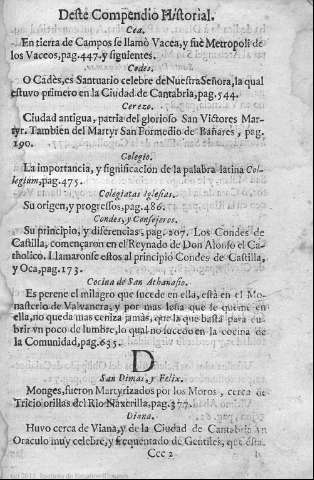 Deste Compendio Historial.
Cea.
En tierra de Campos se llamò Vacea, y fuè Metropoli de
los Vaceos, pag.447. y siguientes.
Codes.
O Cadès, es Santuario celebre de Nuestra Señora, la qual
estuvo primero en la Ciudad de Cantabria, pag.544.
Cerezo.
Ciudad antigua, patria del glorioso San Victores Mar-
tyr. Tambien del Martyr San Formedio de Bañares, pag.
190.
Colegio.
La importancia, y significacion de la palabra latina Col-
legium, pag.475.
Colegiatas Iglesias.
Su origen, y progressos, pag.486.
Condes, y Consejeros.
Su principio, y diferencias, pag.207. Los Condes de
Castilla, començaron en el Reynado de Don Alonso el Ca-
tholico. Llamaronse estos al principio Condes de Castilla,
y Oca, pag.173.
Cocina de San Athanasio.
Es perene el milagro que sucede en ella, està en el Mo-
nasterio de Valvanera, y por mas leña que se queme en
ella, no queda mas ceniza jamàs, que la que basta para cu-
brir vn poco de lumbre, lo qual no sucedo en la cocina de
la Comunidad, pag.635.
D
San Dimas, y Felix.
Monges, fueron Martyrizados por los Moros, cerca de
Tricio orillas del Rio Naxerilla, pag.377.
Diana.
Huvo cerca de Viana, y de la Ciudad de Cantabria vn
Oraculo muy celebre, y frequentado de Gentiles, que esta.
Ccc 2